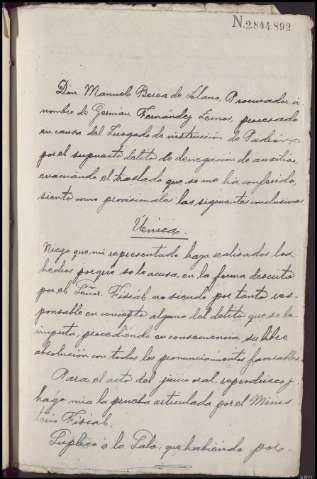 N.2844.892
Don Manuel Berea de Llano, Procurador, a
nombre de Germán Fernández Lema, procesado
en causa del Juzgado de instrucción de Padrón
por el supuesto delito de denegación de auxilio,
evacuando el traslado que se me ha conferido,
siento como provisionales las siguientes conclusiones
Unica.
Niego que mi representado haya realizado los
hechos porque se le acusa, en la forma descrita
por el Señor Fiscal no siendo por tanto res-
ponsable en concepto alguno del delito que se le
imputa, procediendo en consecuencia su libre
absolución con todos los pronunciamientos favorables
Para el acto del juicio oral reproduzco y
hago mia la prueba articulada por el Minis
terio Fiscal.
Suplico á la Sala, que habiendo por